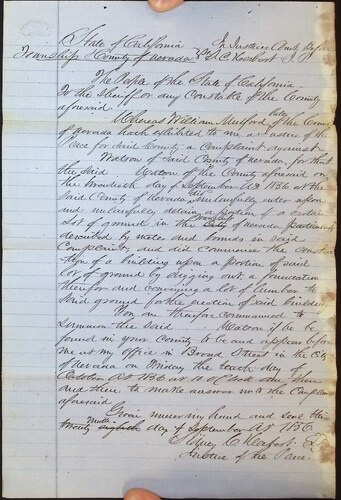 State of California } In Justices Court before
Township County of Nevada } S. C. J. P.
The People of the State of California
To the Sheriff or any Constable of the County
aforesaid
Whereas William Mulford of the County
of Nevada hath exhibited to me a Justice of the
Peace for said County a Complaint against
Watson of Said County of Nevada, for that
the said Watson of the County aforesaid on
the twentieth day of September AD 1856 at the
Said County of Nevada did unlawfully enter upon
and unlawfully detain a portion of a certain
lot of ground in the City of Nevada particularly
described by metes and bounds in said
Complaint and did commence the construc
tion of a building upon a portion of said
lot of ground by digging out a foundation
therefor and conveying a lot of lumber to
Said ground for the erection of said building
You are therefore commanded to
Summon the said Watson if he be
found in your County to be and appear before
me at my office in Broad Street in the City
of Nevada on Friday the tenth day of
October AD 1856 at 10 O'Clock then
and there to make answer unto the Complaint
aforesaid
Given under my hand and Seal this
twenty ninth eighth day of September AD 1856
Justice of the Peace